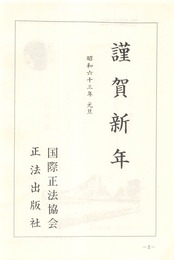 謹賀新年
昭和六十三年 元旦
国際正法協会
正法出版社